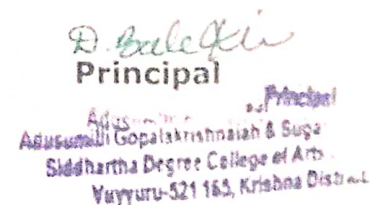 D. Bala
Principal
Principal
Adusumilli Gopalakrishnaiah & Suga
Siddhartha Degree College of Arts
Vuyyuru-521 165, Krishna Dist